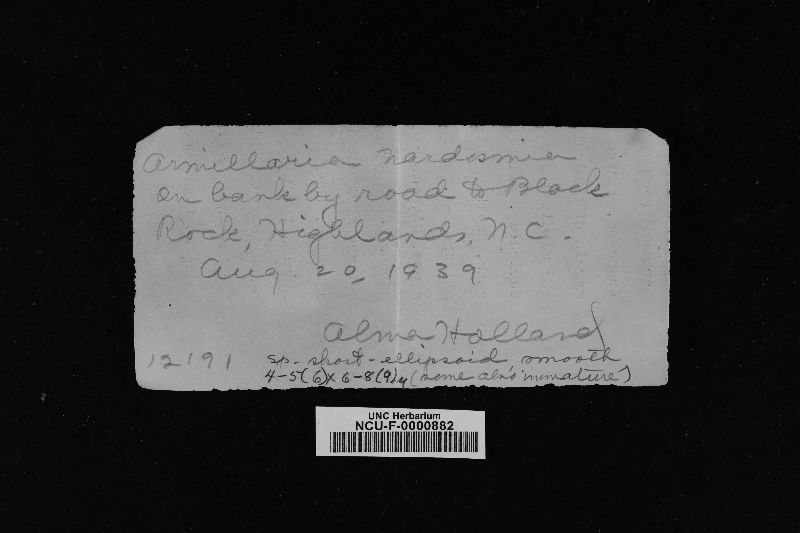 Armillaria nardosmia
on bank by road to Black
Rock, Highlands, N.C.
Aug. 20, 1939
Alma Holland
12191
sp. short-ellipsoid smooth
4-5(6) x 6-8(9)µ (some immature)
UNC Herbarium
NCU-F-0000882